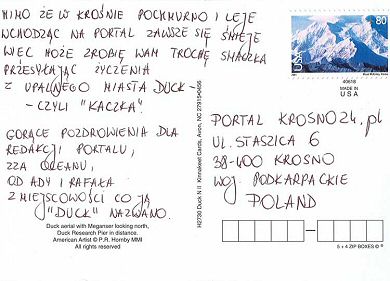 MIMO ŻE W KROŚNIE POCHMURNO I LEJE
WCHODZĄC NA PORTAL ZAWSZE SIĘ ŚMIEJĘ
WIĘC MOŻE ZROBIĘ WAM TROCHĘ SMACZKA
PRZESYŁAJĄC ŻYCZENIA
Z UPALNEGO MIASTA DUCK -
- CZYLI "KACZKA".
GORĄCE POZDROWIENIA DLA
REDAKCJI PORTALU,
ZZA OCEANU,
OD ADY I RAFAŁA
Z MIEJSCOWOŚCI CO JĄ
"DUCK" NAZWANO.
Duck aerial with Meganser looking north,
Duck Research Pier in distance.
American Artist © P.R. Hornby MMI
All rights reserved
H2730 Duck N II Kinnakeet Cards, Avon, NC 27915
USA
80
40618
MADE IN
USA
PORTAL KROSNO24.pl
UL. STASZICA 6
38-400 KROSNO
WOJ. PODKARPACKIE
POLAND
5 + 4 ZIP BOXES ©